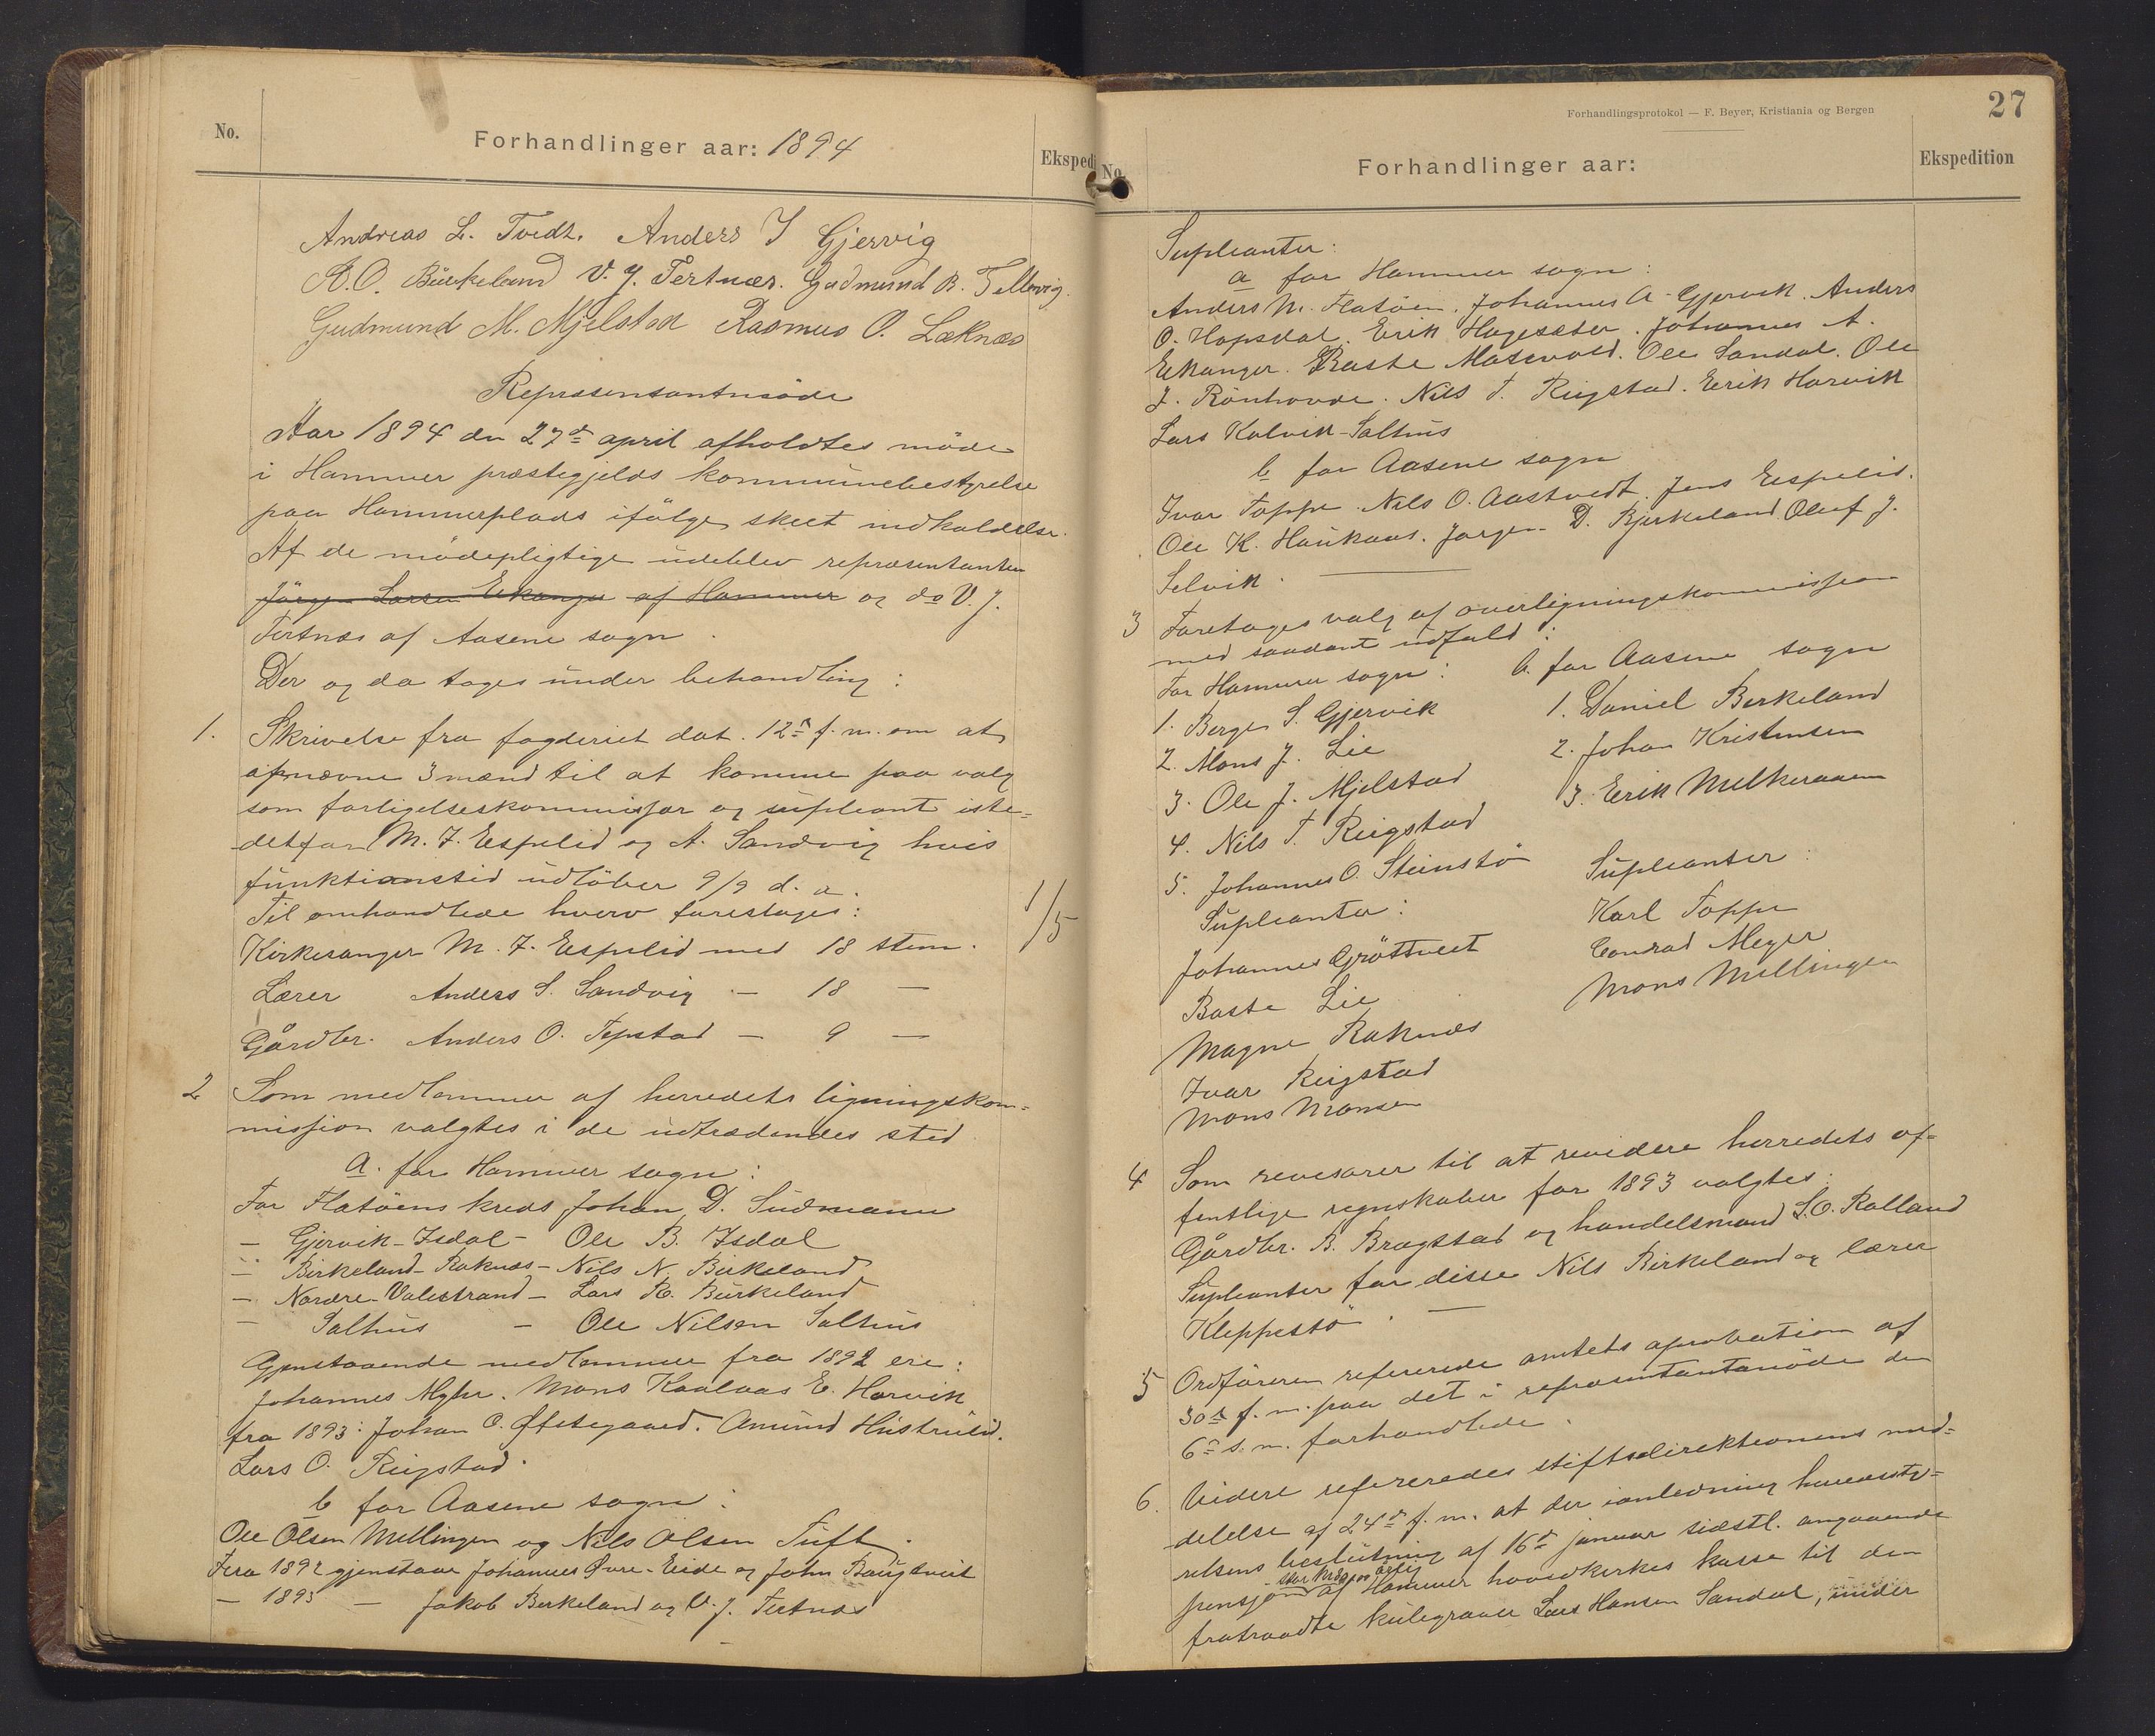 No.
Forhandlinger aar: 1894
Ekspedi
Andreas L. Tvedt. Anders I Gjervig
A. O. Birkeland V. J. Tertnæs. Gudmund B. Tellevig.
Gudmund M. Mjelstad Rasmus O. Læknæs
Repræsentantmöde
Aar 1894 den 27de april afholdtes möde
i Hammer præstegjelds kommunebestyrelse
paa Hammerplads ifölge skeet indkaldelse.
Af de mödepligtige udeblev repræsentanten
Jörgen Larsen Eikanger af Hammer og do V. J.
Tertnæs af Aasene sogn.
Der og da toges under behandling:
1. Skrivelse fra fogderiet dat. 12te f. m. om at
opnævne 3 mænd til at komme paa valg
som forligelseskommissær og supleant iste-
detfor M. J. Espelid og A. Sandvig hvis
funktionstid udlöber 9/9 d. a.
Til omhandlede hverv forestoges:
1/5
Kirkesanger M. J. Espelid med 18 stem.
Lærer Anders S. Sandvig — 18 —
Gårdbr. Anders O. Tepstad — 9 —
2 Som medlemmer af herredets ligningskom-
mission valgtes i de udtrædendes sted
a. for Hammer sogn:
For Flatöens kreds Johan D. Sudmann
— Gjervik-Isdal - Ole B. Isdal
— Birkeland-Raknæs - Nils N. Birkeland
— Nordre-Valestrand - Lars R. Birkeland
— Salhus - Ole Nilsen Salhus
Gjenstaaende medlemmer fra 1892 ere:
Johannes Myhr. Mons Kaalaas E. Horvik
fra 1893: Johan O. Öfstegaard. Amund Hustrulid.
Lars O. Rigstad.
b for Aasene sogn:
Ole Olsen Mellingen og Nils Olsen Tuft.
Fra 1892 gjenstaar Johannes Övre-Eide og John Haugtveit
— 1893 — Jakob Birkeland og V. J. Tertnæs
Forhandlingsprotokol — F. Beyer, Kristiania og Bergen
27
No.
Forhandlinger aar:
Ekspedition
Supleanter:
a for Hammer sogn:
Anders M. Flatöen. Johannes A. Gjervik. Anders
O. Hopsdal. Erik Hagesæter. Johannes A.
Eikanger. Baste Moldevold. Ole Sandal. Ole
J. Rönhovde. Nils T. Rigstad. Erik Horvik
Lars Kalvik-Salhus
b for Aasene sogn
Ivar Toppe. Nils O. Aastvedt. Jens Espelid.
Ole K. Haukaas. Jörgen D. Birkeland Oluf J.
Selvik.
3 Foretoges valg af overligningskommission
med saadant udfald:
For Hammer sogn: b. for Aasene sogn
1. Berge S. Gjervik 1. Daniel Birkeland
2. Mons J. Lie 2. Johan Kristensen
3. Ole J. Mjelstad 3. Erik Mulkeraaen
4. Nils T. Rigstad
5. Johannes O. Steinstö Supleanter:
Supleanter: Karl Toppe
Johannes Gröttveit Conrad Meyer
Baste Lie Mons Mellingen
Magne Raknæs
Ivar Rigstad
Mons Monsen
4 Som revisorer til at revidere herredets of-
fentlige regnskaber for 1893 valgtes:
Gårdbr. B. Brogstad og handelsmand S. O. Rolland
Supleanter for disse Nils Birkeland og lærer
Kleppestö.
5 Ordföreren refererede amtets aprobation af
30te f. m. paa det i repræsentantmöde den
6te s. m. forhandlede.
6. Videre refereredes stiftsdirektionens med-
delelse af 24de f. m. at der ianledning herredssty-
relsens beslutning af 16de januar sidstl. angaaende
pensjon af Hammer hovedkirkes kasse til den
fratraadte kulegraver Lars Hansen Sandal, under